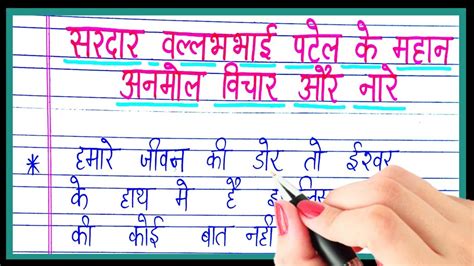 सरदार वल्लभभाई पटेल के महान
अनमोल विचार और नारे
* हमारे जीवन की डोर तो ईश्वर
के हाथ मे है
की कोई बात नही